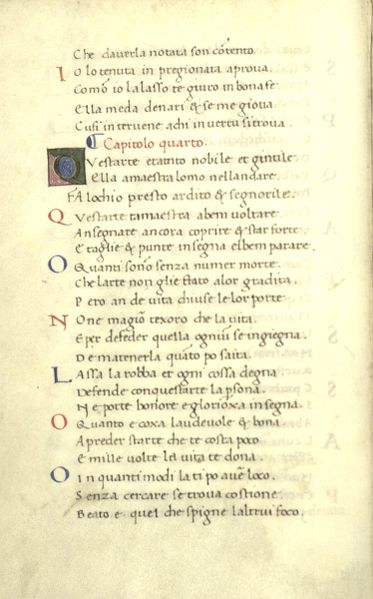 Che daverla notata son cōtento.
I O lo tenuta in pregionata aprova.
Comō io lalasso te giuro in bona fe
E lla meda denari & se me giova
C usi in tervene achi in vertu si trova.
¶ Capitolo quarto.
Q Vestarte e tanto nobile et gintile
E lla amaestra lomo nellandare.
FA lochio presto ardito & segnorile.
Q Vestarte ta maestra a bem voltare.
A nsegnare ancora coprire & star forte
E taglie & punte insegna el bem parare.
O Quanti sonō senza numer morte.
Che larte non glie stato alor gradita.
P ero an de vita chiuse le lor porte
N One magiō texoro che la vita.
E per defēder quella ogniū se ingiegna.
D e mātenerla quāto po saita.
L Assa la robba et ogni cossa degna
Defende conquestarte la p̄sona.
N e porte honore e glorioxa insegna.
O Quanto e coxa laudevole & bona.
A preder starte che te costa poco
E mille volte lei vita te dona.
O I n quanti modi la ti po avē loco.
Senza cercare se trova costione.
Beato e quel che spigne laltrui foco.